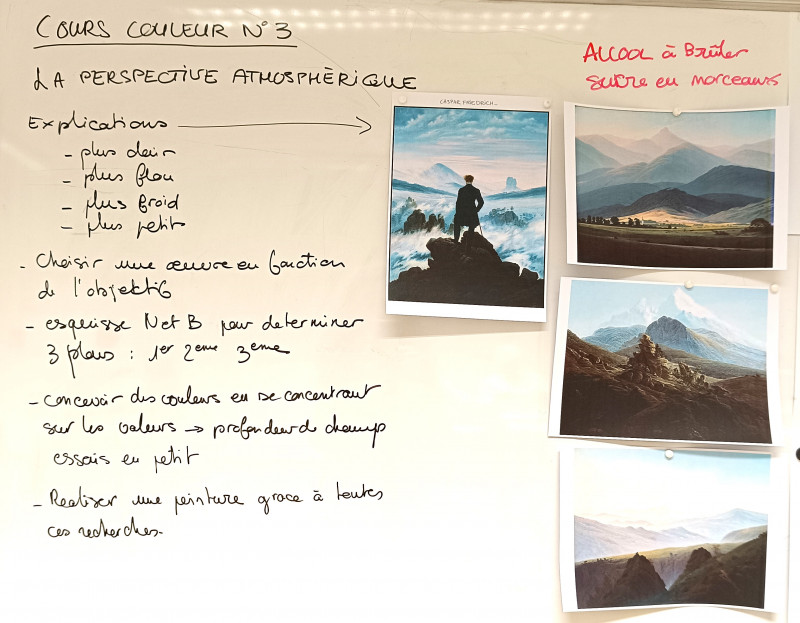 COURS COULEUR N°3
LA PERSPECTIVE ATMOSPHÈRIQUE
Explications
- plus clair
- plus flou
- plus froid
- plus petit
- Choisir une œuvre en fonction
de l'objectif
- esquisse N et B pour determiner
3 plans : 1er 2eme 3eme
- concevoir des couleurs en se concentrant
sur les valeurs → profondeur de champs
essais en petit
- Realiser une peinture grace à toutes
ces recherches.
ALCOOL à Brûler
sucre en morceaux
CASPAR FRIEDRICH...